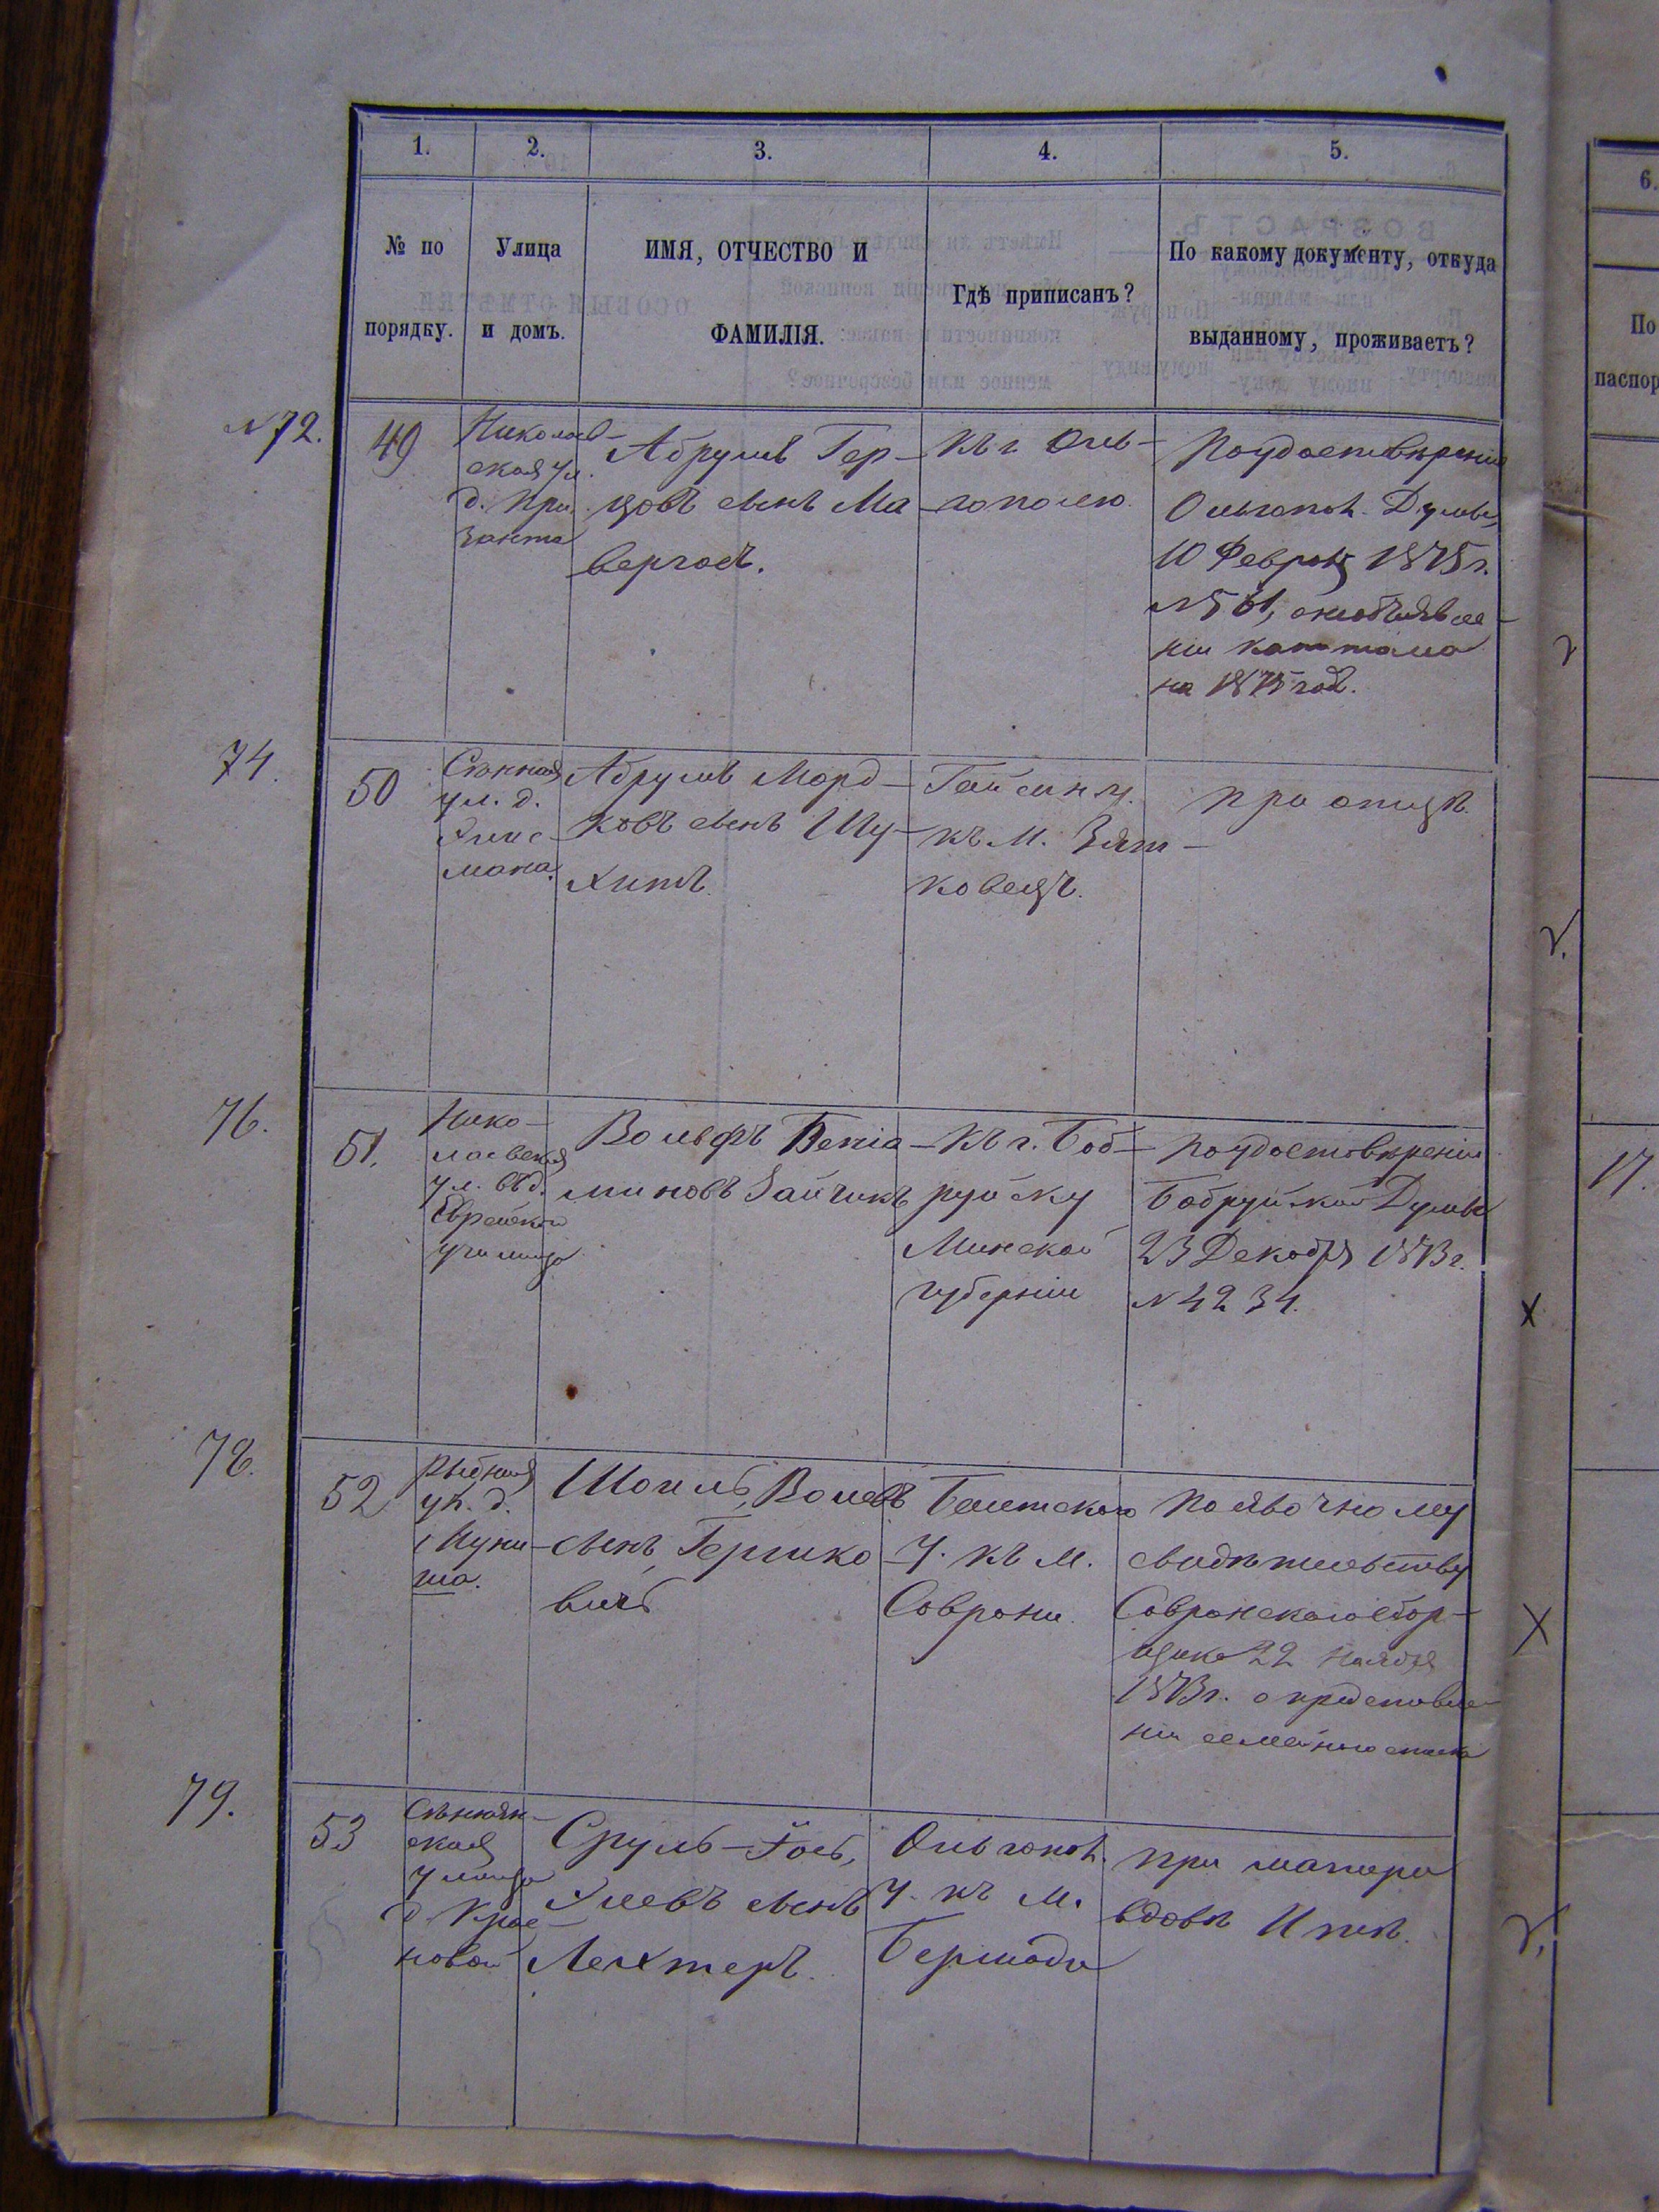 1.
2.
3.
4.
5.
№ по порядку.
Улица и домъ.
ИМЯ, ОТЧЕСТВО И ФАМИЛІЯ.
Гдѣ приписанъ?
По какому документу, откуда выданному, проживаетъ?
6.
По
паспор
№72.
49
Николаев-
ская ул.
д. При
занта
Абрумъ Гер-
цовъ сынъ Ма
вергозъ.
Къ г. Оль-
гополю.
По удостовѣренію
Ольгопол. Думы,
10 Февраля 1875 г.
№561, о
на 1875 годъ.
74.
50
Сѣнная
ул. д.
мана.
Абрумъ Морд-
ковъ сынъ Шу-
хитъ.
Гайсин. у.
къ м. Зят-
ковецъ.
при отцѣ.
76.
51.
Нико-
лаевская
ул. въ д.
Еврейского
училища
Вольфъ Беніа-
миновъ Зайчикъ
Къ г. Боб-
руйску
Минской
губерніи
По удостовѣренію
Бобруйской Думы
23 Декабря 1873 г.
№ 4234.
17.
78.
52
Рыбная
ул. д.
Шоиль, Вольевъ
сынъ Гершко-
вичъ
Балтского
у. къ м.
Саврани.
По явочному
свидѣтельству
Савранского сбор-
щика 22 Ноября
1873 г. о представле-
ніи семейного списка
79.
53
ская
улица
д. Крас-
новой
Сруль-Іось,
сынъ
Лехтеръ.
Ольгопол.
у. къ м.
Бершади
при матери
вдовѣ Итѣ.